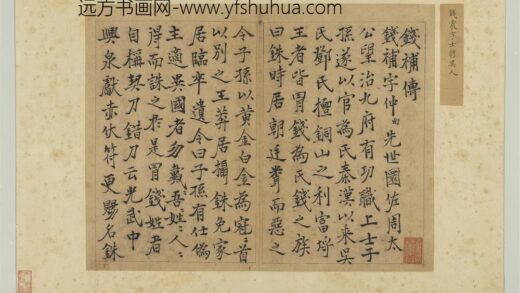 远方书画网- www.yfshuhua.com
錢補傳
錢補字仲由先世國佐周太
公望治九府有功職上士子
孫遂以官為氏秦漢以來吳
民鄧氏擅銅山之利富埒
王者皆冒錢為氏錢之族
曰銖時居朝廷而惡之
令子孫以黃金白金為冠〻首
以別之王莽居攝銖免家
居臨卒遺令曰子孫有仕偽
主適吳國者勿戴吾姓〻人〻
得而誅之於是冒錢姓者
自稱契刀錯刀云光武中
興泉獻赤伏符更賜名銖